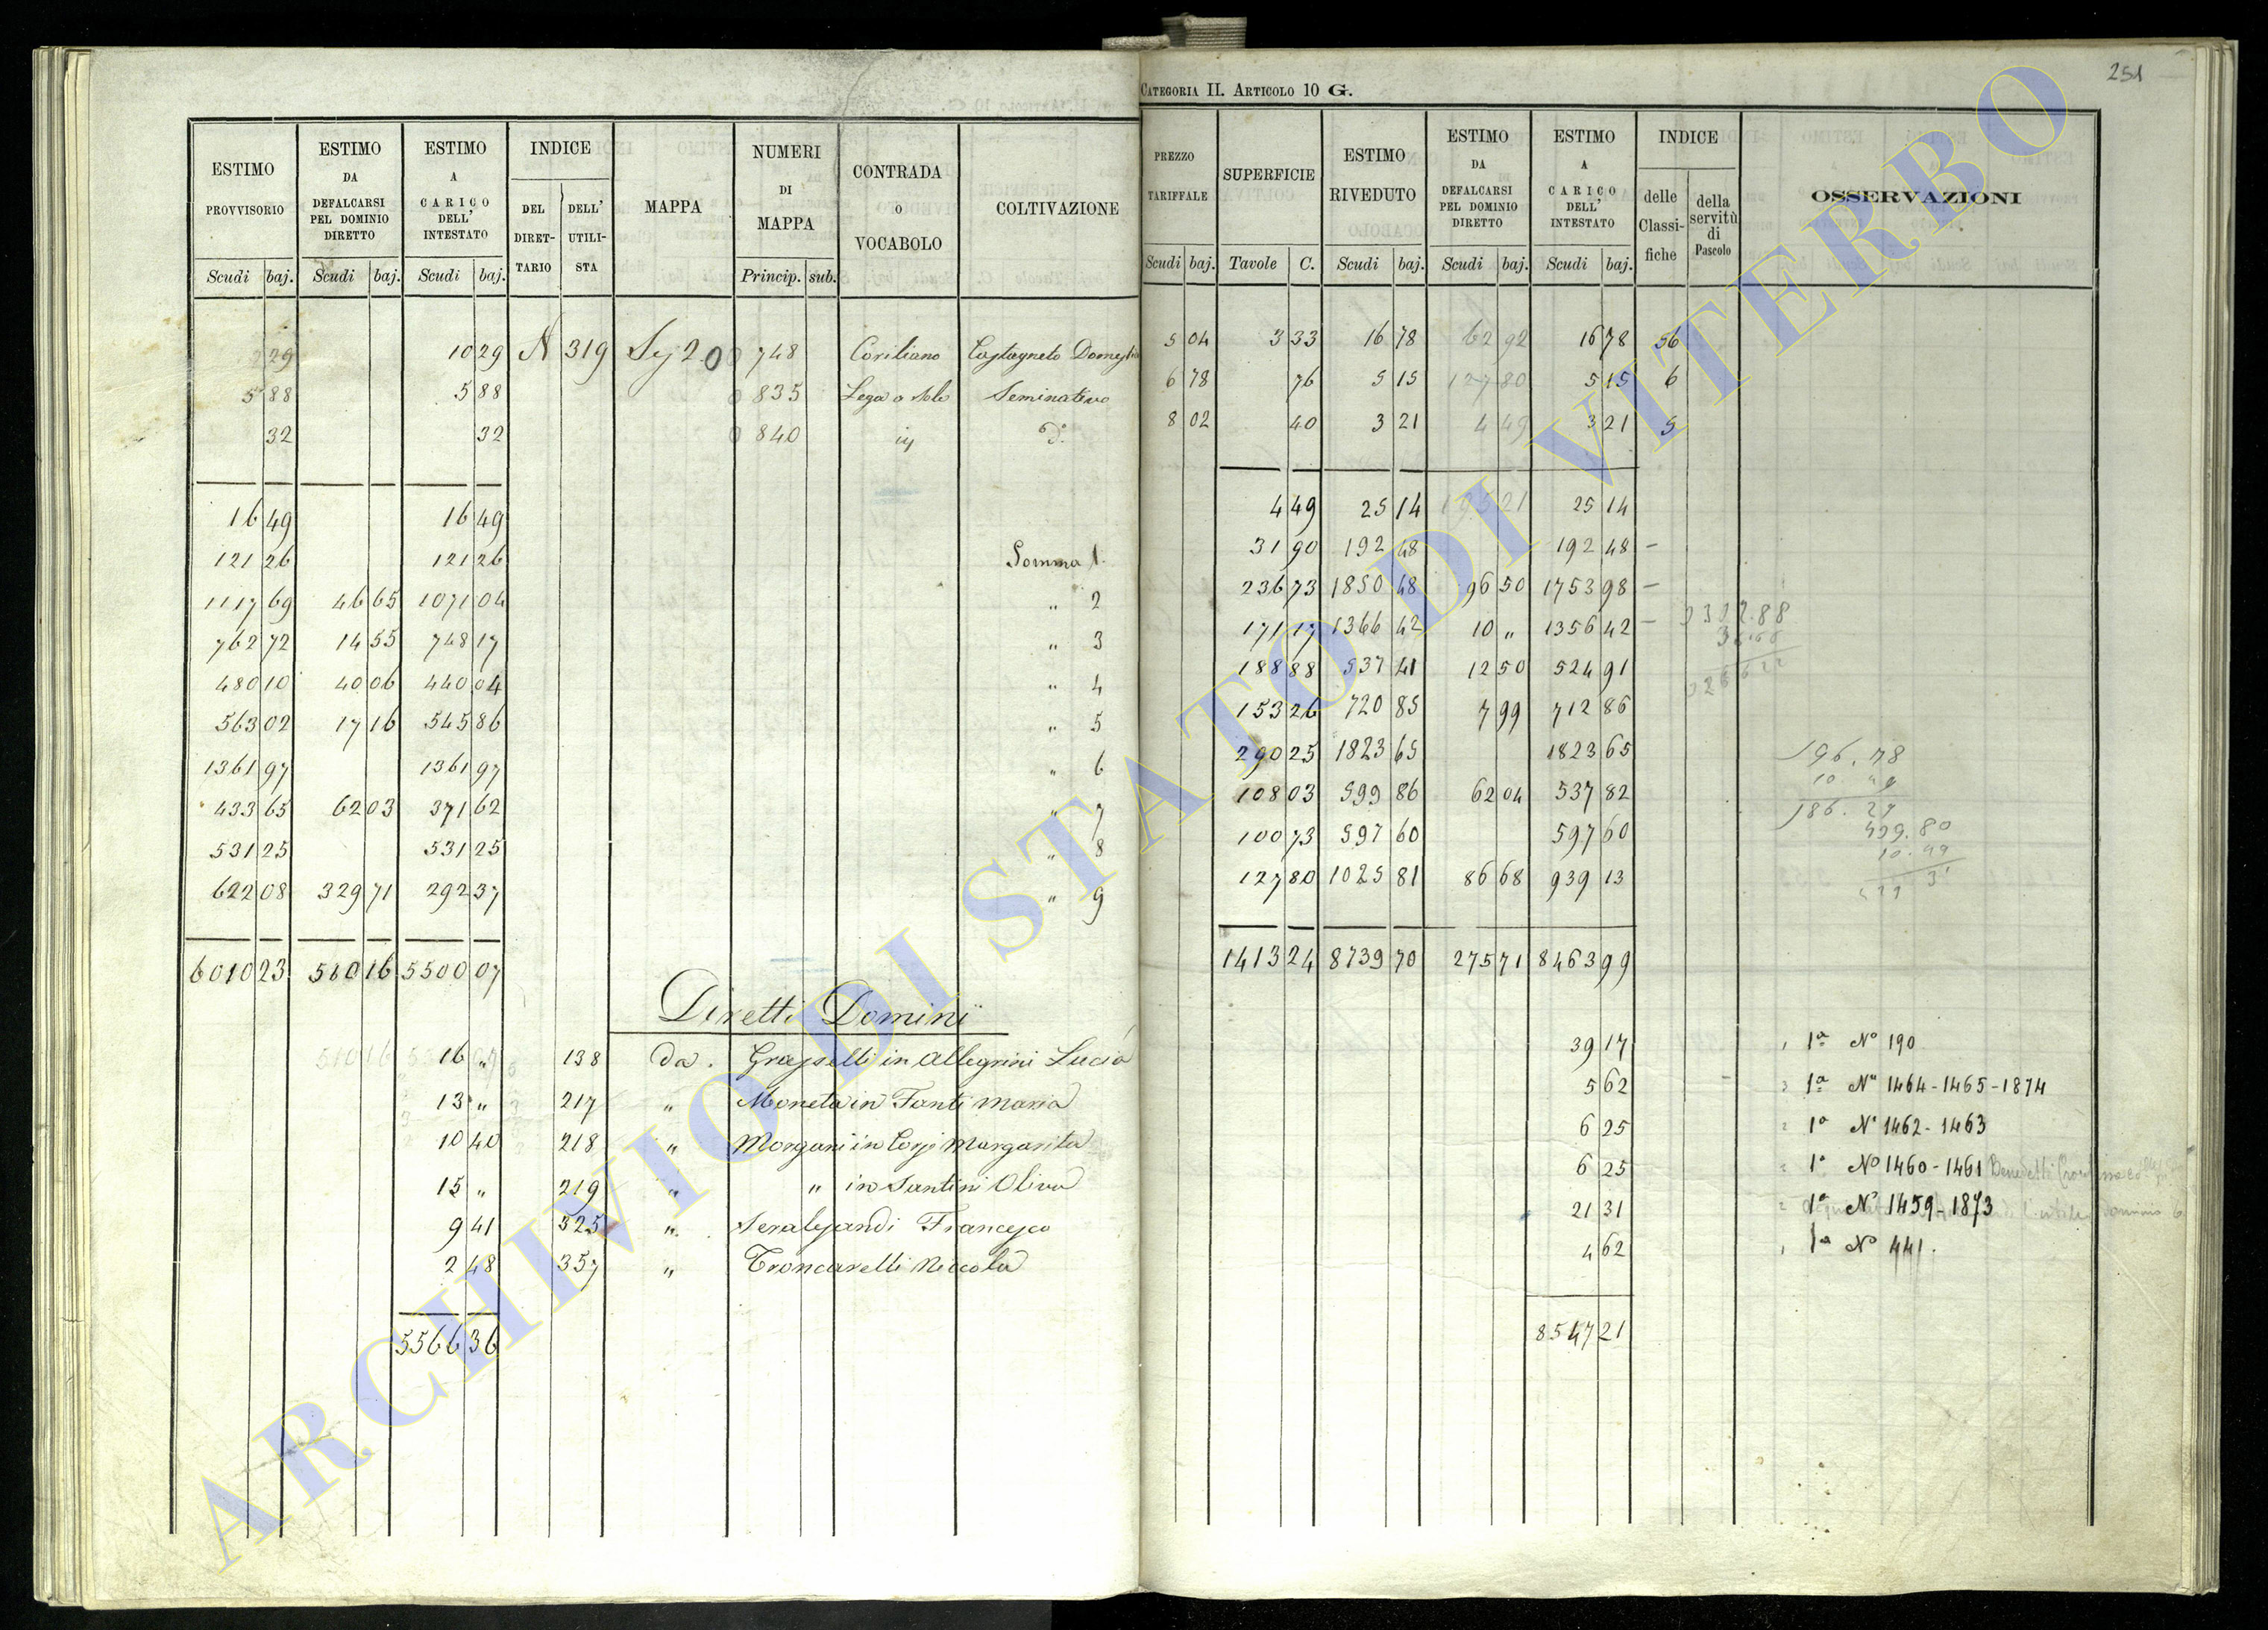 251
CATEGORIA II. ARTICOLO 10 G.
ESTIMO PROVVISORIO Scudi baj.
ESTIMO DA DEFALCARSI PEL DOMINIO DIRETTO Scudi baj.
ESTIMO A CARICO DELL' INTESTATO Scudi baj.
INDICE DEL DIRET-TARIO DELL' UTILI-STA
MAPPA
NUMERI DI MAPPA Princip. sub.
CONTRADA o VOCABOLO
COLTIVAZIONE
PREZZO TARIFFALE Scudi baj.
SUPERFICIE Tavole C.
ESTIMO RIVEDUTO Scudi baj.
ESTIMO DA DEFALCARSI PEL DOMINIO DIRETTO Scudi baj.
ESTIMO A CARICO DELL' INTESTATO Scudi baj.
INDICE delle Classi-fiche della servitù di Pascolo
OSSERVAZIONI
29 10 29 N 319 748 Coriliano Castagneto 5 04 3 33 16 78 62 92 16 78 56
5 88 5 88 835 Lega o Seminativo 6 78 76 5 15 127 80 5 15 6
32 32 840 d.o 8 02 40 3 21 4 49 3 21 5
16 49 16 49 4 49 25 14 195 21 25 14
121 26 121 26 Somma 1. 31 90 192 48 192 48 –
1117 69 46 65 1071 04 " 2 236 73 1850 48 96 50 1753 98 –
762 72 14 55 748 17 " 3 171 17 1366 42 10 " 1356 42 –
480 10 40 06 440 04 " 4 188 88 537 41 12 50 524 91
563 02 17 16 545 86 " 5 153 26 720 85 7 99 712 86
1361 97 1361 97 " 6 290 25 1823 65 1823 65
433 65 62 03 371 62 " 7 108 03 599 86 62 04 537 82
531 25 531 25 " 8 100 73 597 60 597 60
622 08 329 71 292 37 " 9 127 80 1025 81 86 68 939 13
196.78
186.29
6010 23 510 16 5500 07 1413 24 8739 70 275 71 8463 99
Diretti Dominî
16 " 138 Da. Grasselli in Allegrini Lucia 39 17 1a No 190
13 " 217 " Moneta in Fanti Maria 5 62 1a No 1464-1465-1874
10 40 218 " Morgani in Corsi Margarita 6 25 1a No 1462-1463
15 " 219 " " in Santini Oliva 6 25 1a No 1460-1461 Benedetti
9 41 325 " Seralessandi Francesco 21 31 1a No 1459-1873
2 48 357 " Troncarelli Niccola 4 62 1a No 441.
5566 36 8547 21
ARCHIVIO DI STATO DI VITERBO